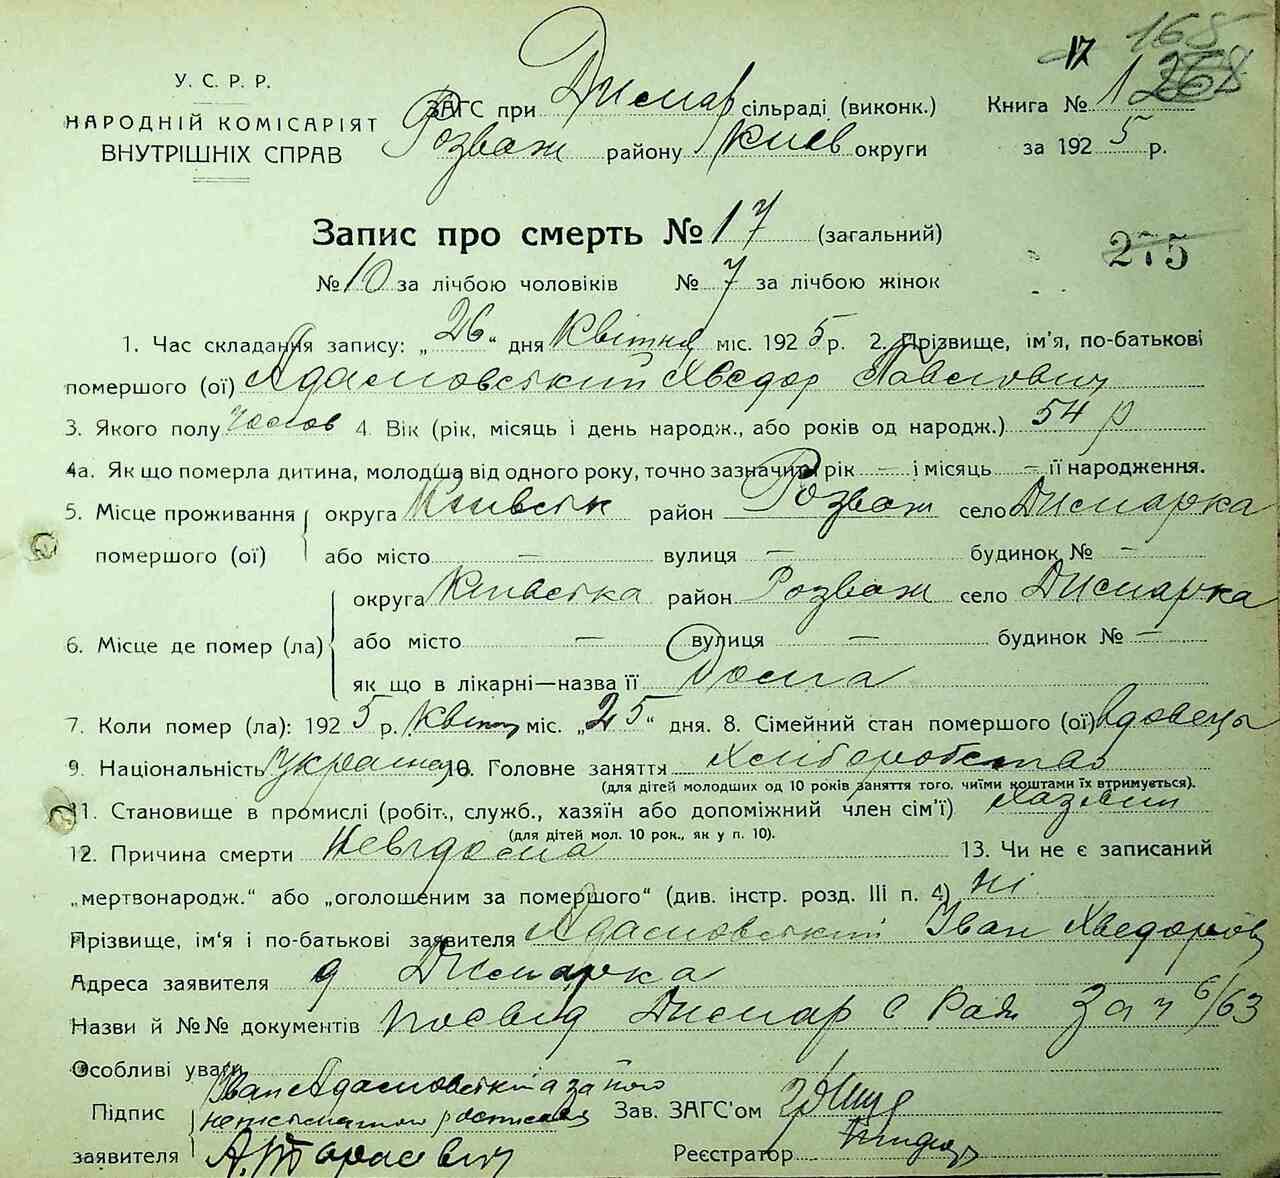 168
17
У. С. Р. Р.
НАРОДНІЙ КОМІСАРІЯТ
ВНУТРІШНІХ СПРАВ
ЗАГС при Димар сільраді (виконк.)
Розваж району Київ округи
Книга № 1
за 1925 р.
Запис про смерть № 17 (загальний)
275
№ 10 за лічбою чоловіків № 7 за лічбою жінок
1. Час складання запису: „26“ дня Квітня міс. 1925 р. 2. Прізвище, ім’я, по-батькові
помершого (ої) Адамовський Хведор Павлович
3. Якого полу чолов 4. Вік (рік, місяць і день народж., або років од народж.) 54 р
4а. Як що померла дитина, молодша від одного року, точно зазначити рік — і місяць — її народження.
5. Місце проживання помершого (ої) округа Київськ район Розваж село Димарка
або місто — вулиця — будинок № —
6. Місце де помер (ла) округа Київська район Розваж село Димарка
або місто — вулиця — будинок № —
як що в лікарні—назва її Дома
7. Коли помер (ла): 1925 р. Квітня міс. „25“ дня. 8. Сімейний стан помершого (ої) вдовець
9. Національність україна 10. Головне заняття Хліборобство
(для дітей молодших од 10 років заняття того, чиїми коштами їх втримується).
11. Становище в промислі (робіт., служб., хазяїн або допоміжний член сім’ї) хазяїн
(для дітей мол. 10 рок., як у п. 10).
12. Причина смерти Невідома 13. Чи не є записаний
„мертвонародж.“ або „оголошеним за помершого“ (див. інстр. розд. III п. 4) ні
Прізвище, ім’я і по-батькові заявителя Адамовський Іван Хведоров
Адреса заявителя д Димарка
Назви й №№ документів посвід Димар с Рад за ч 6/63
Особливі уваги
Підпис заявителя Іван Адамовський а за його
неписьменого росписався
А. Тарасевич
Зав. ЗАГС’ом
Реєстратор